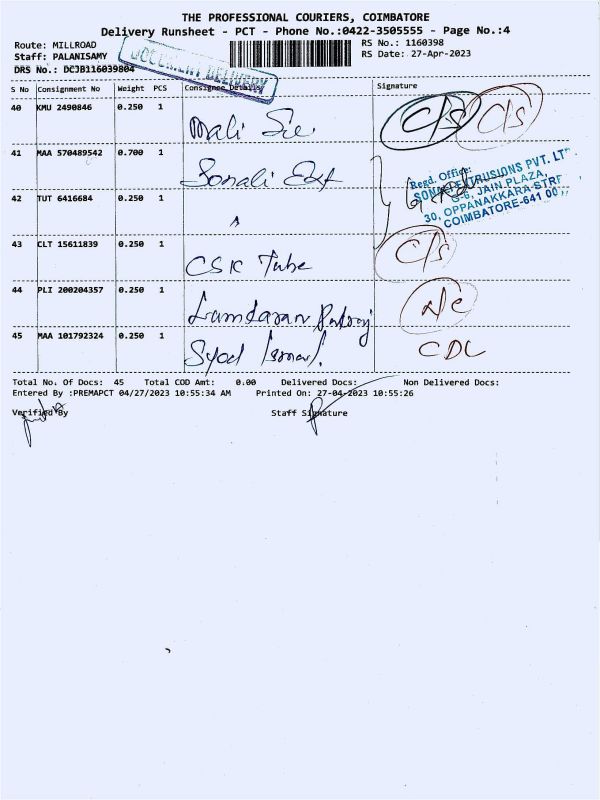 THE PROFESSIONAL COURIERS, COIMBATORE
Delivery Runsheet - PCT - Phone No.:0422-3505555 - Page No.:4
Route: MILLROAD
Staff: PALANISAMY
DRS No.: DCJB116039804
DOCUMENT DELIVERY
RS No.: 1160398
RS Date: 27-Apr-2023
S No Consignment No Weight PCS Consignee Details Signature
40 KMU 2490846 0.250 1 Mali C/s C/s
41 MAA 570489542 0.700 1 Sonali Ext
Regd. Office:
SONALI EXTRUSIONS PVT. LT
G-6, JAIN PLAZA,
30, OPPANAKKARA STR
COIMBATORE-641 00
42 TUT 6416684 0.250 1
43 CLT 15611839 0.250 1 CSK Tube C/s
44 PLI 200204357 0.250 1
45 MAA 101792324 0.250 1 Syed CDL
Total No. Of Docs: 45 Total COD Amt: 0.00 Delivered Docs: Non Delivered Docs:
Entered By :PREMAPCT 04/27/2023 10:55:34 AM Printed On: 27-04-2023 10:55:26
Verified By Staff Signature